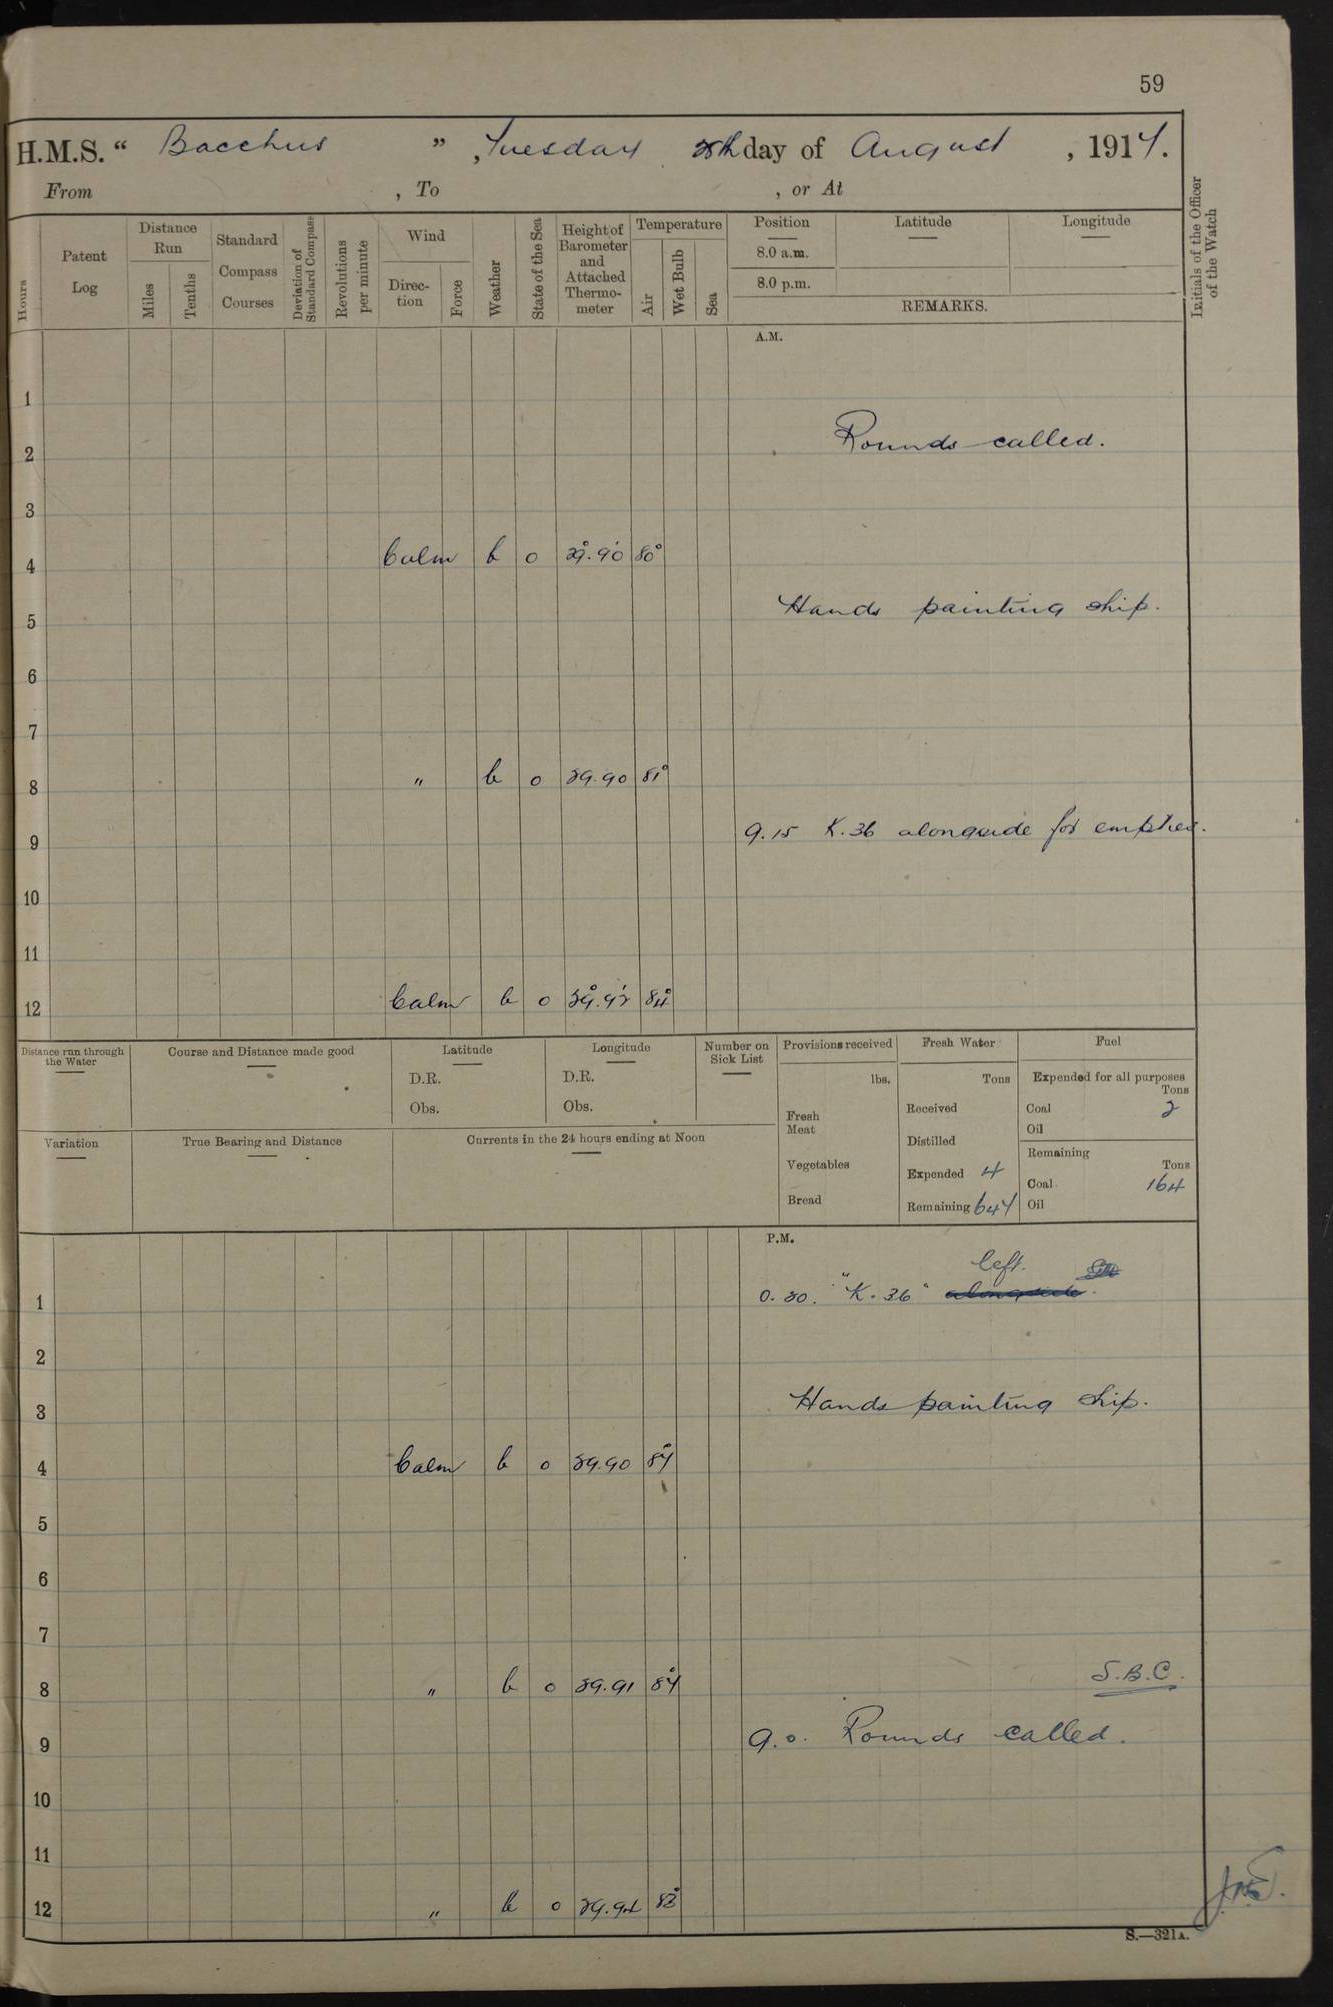 59
H.M.S. " Bacchus " , Tuesday day of August , 1914.
From , To , or At
Hours
Patent Log
Distance Run
Miles
Tenths
Standard Compass Courses
Deviation of Standard Compass
Revolutions per minute
Wind
Direction
Force
Weather
State of the Sea
Height of Barometer and Attached Thermometer
Temperature
Air
Wet Bulb
Sea
Position
8.0 a.m.
8.0 p.m.
Latitude
Longitude
REMARKS.
Initials of the Officer of the Watch
A.M.
1
2 Rounds called.
3
4 Calm b o 29.90 80°
5 Hands painting ship.
6
7
8 " b o 29.90 81°
9 9.15 K.36 alongside for empties.
10
11
12 Calm b o 29.92 84°
Distance run through the Water
Course and Distance made good
Latitude
D.R.
Obs.
Longitude
D.R.
Obs.
Number on Sick List
Provisions received
lbs.
Fresh Meat
Vegetables
Bread
Fresh Water
Tons
Received
Distilled
Expended 4
Remaining 647
Fuel
Expended for all purposes
Tons
Coal 2
Oil
Remaining
Tons
Coal 164
Oil
Variation
True Bearing and Distance
Currents in the 24 hours ending at Noon
P.M.
left.
1 0.30. "K.36" alongside.
2
3 Hands painting ship.
4 Calm b o 29.90 84°
5
6
7
8 " b o 29.91 84° S.B.C.
9 9.0. Rounds called.
10
11
12 " b o
S.—321A.